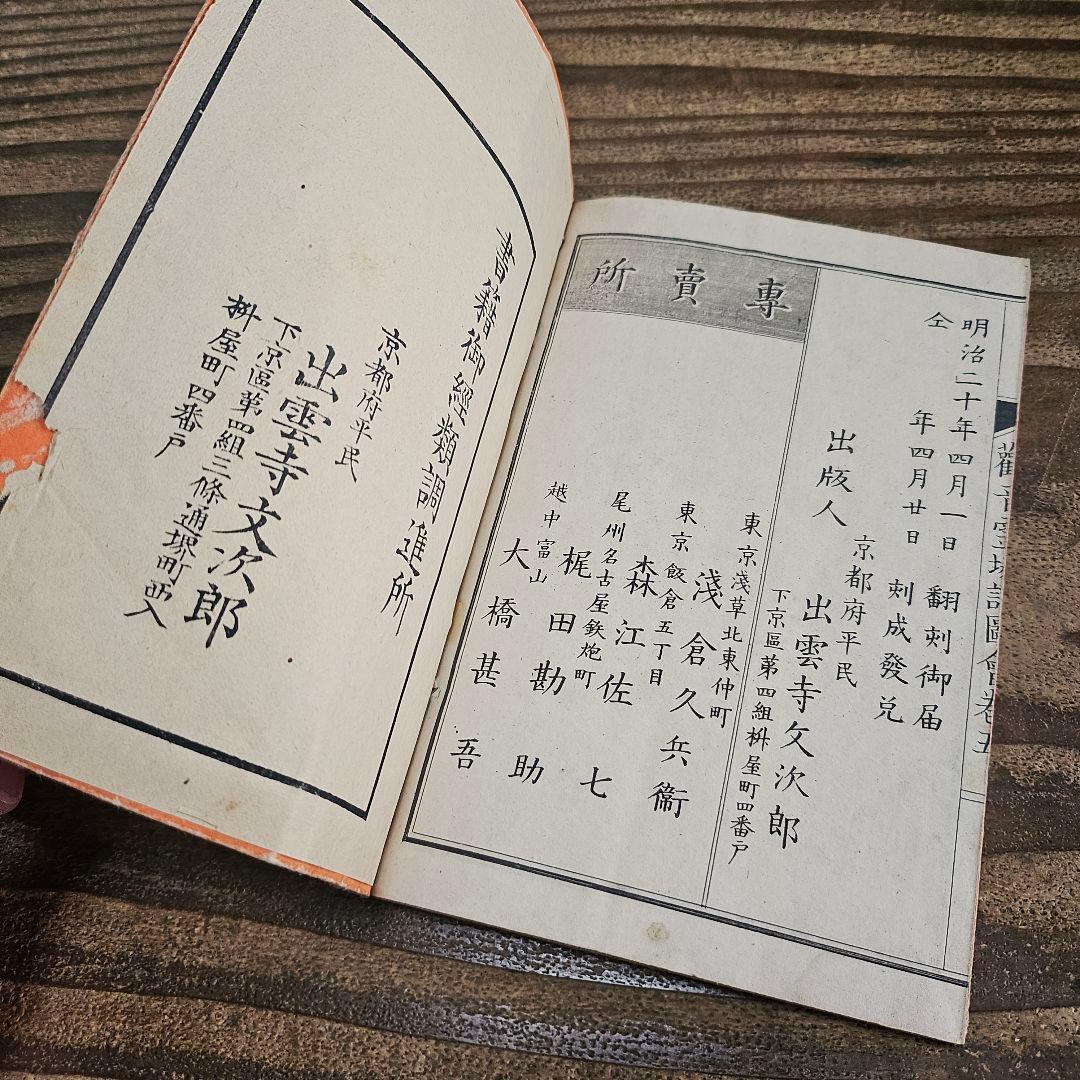 觀音靈場記圖會卷五
明治二十年四月一日翻刻御届
仝年四月廿日刻成發兌
京都府平民
出版人 出雲寺文次郎
下京區第四組桝屋町四番戸
專賣所
東京淺草北東仲町
淺倉久兵衞
東京飯倉五丁目
森江佐七
尾州名古屋鉄炮町
梶田勘助
越中富山
大橋甚吾
書籍御經類調進所
京都府平民
出雲寺文次郎
下京區第四組三條通堺町西入
桝屋町四番戸